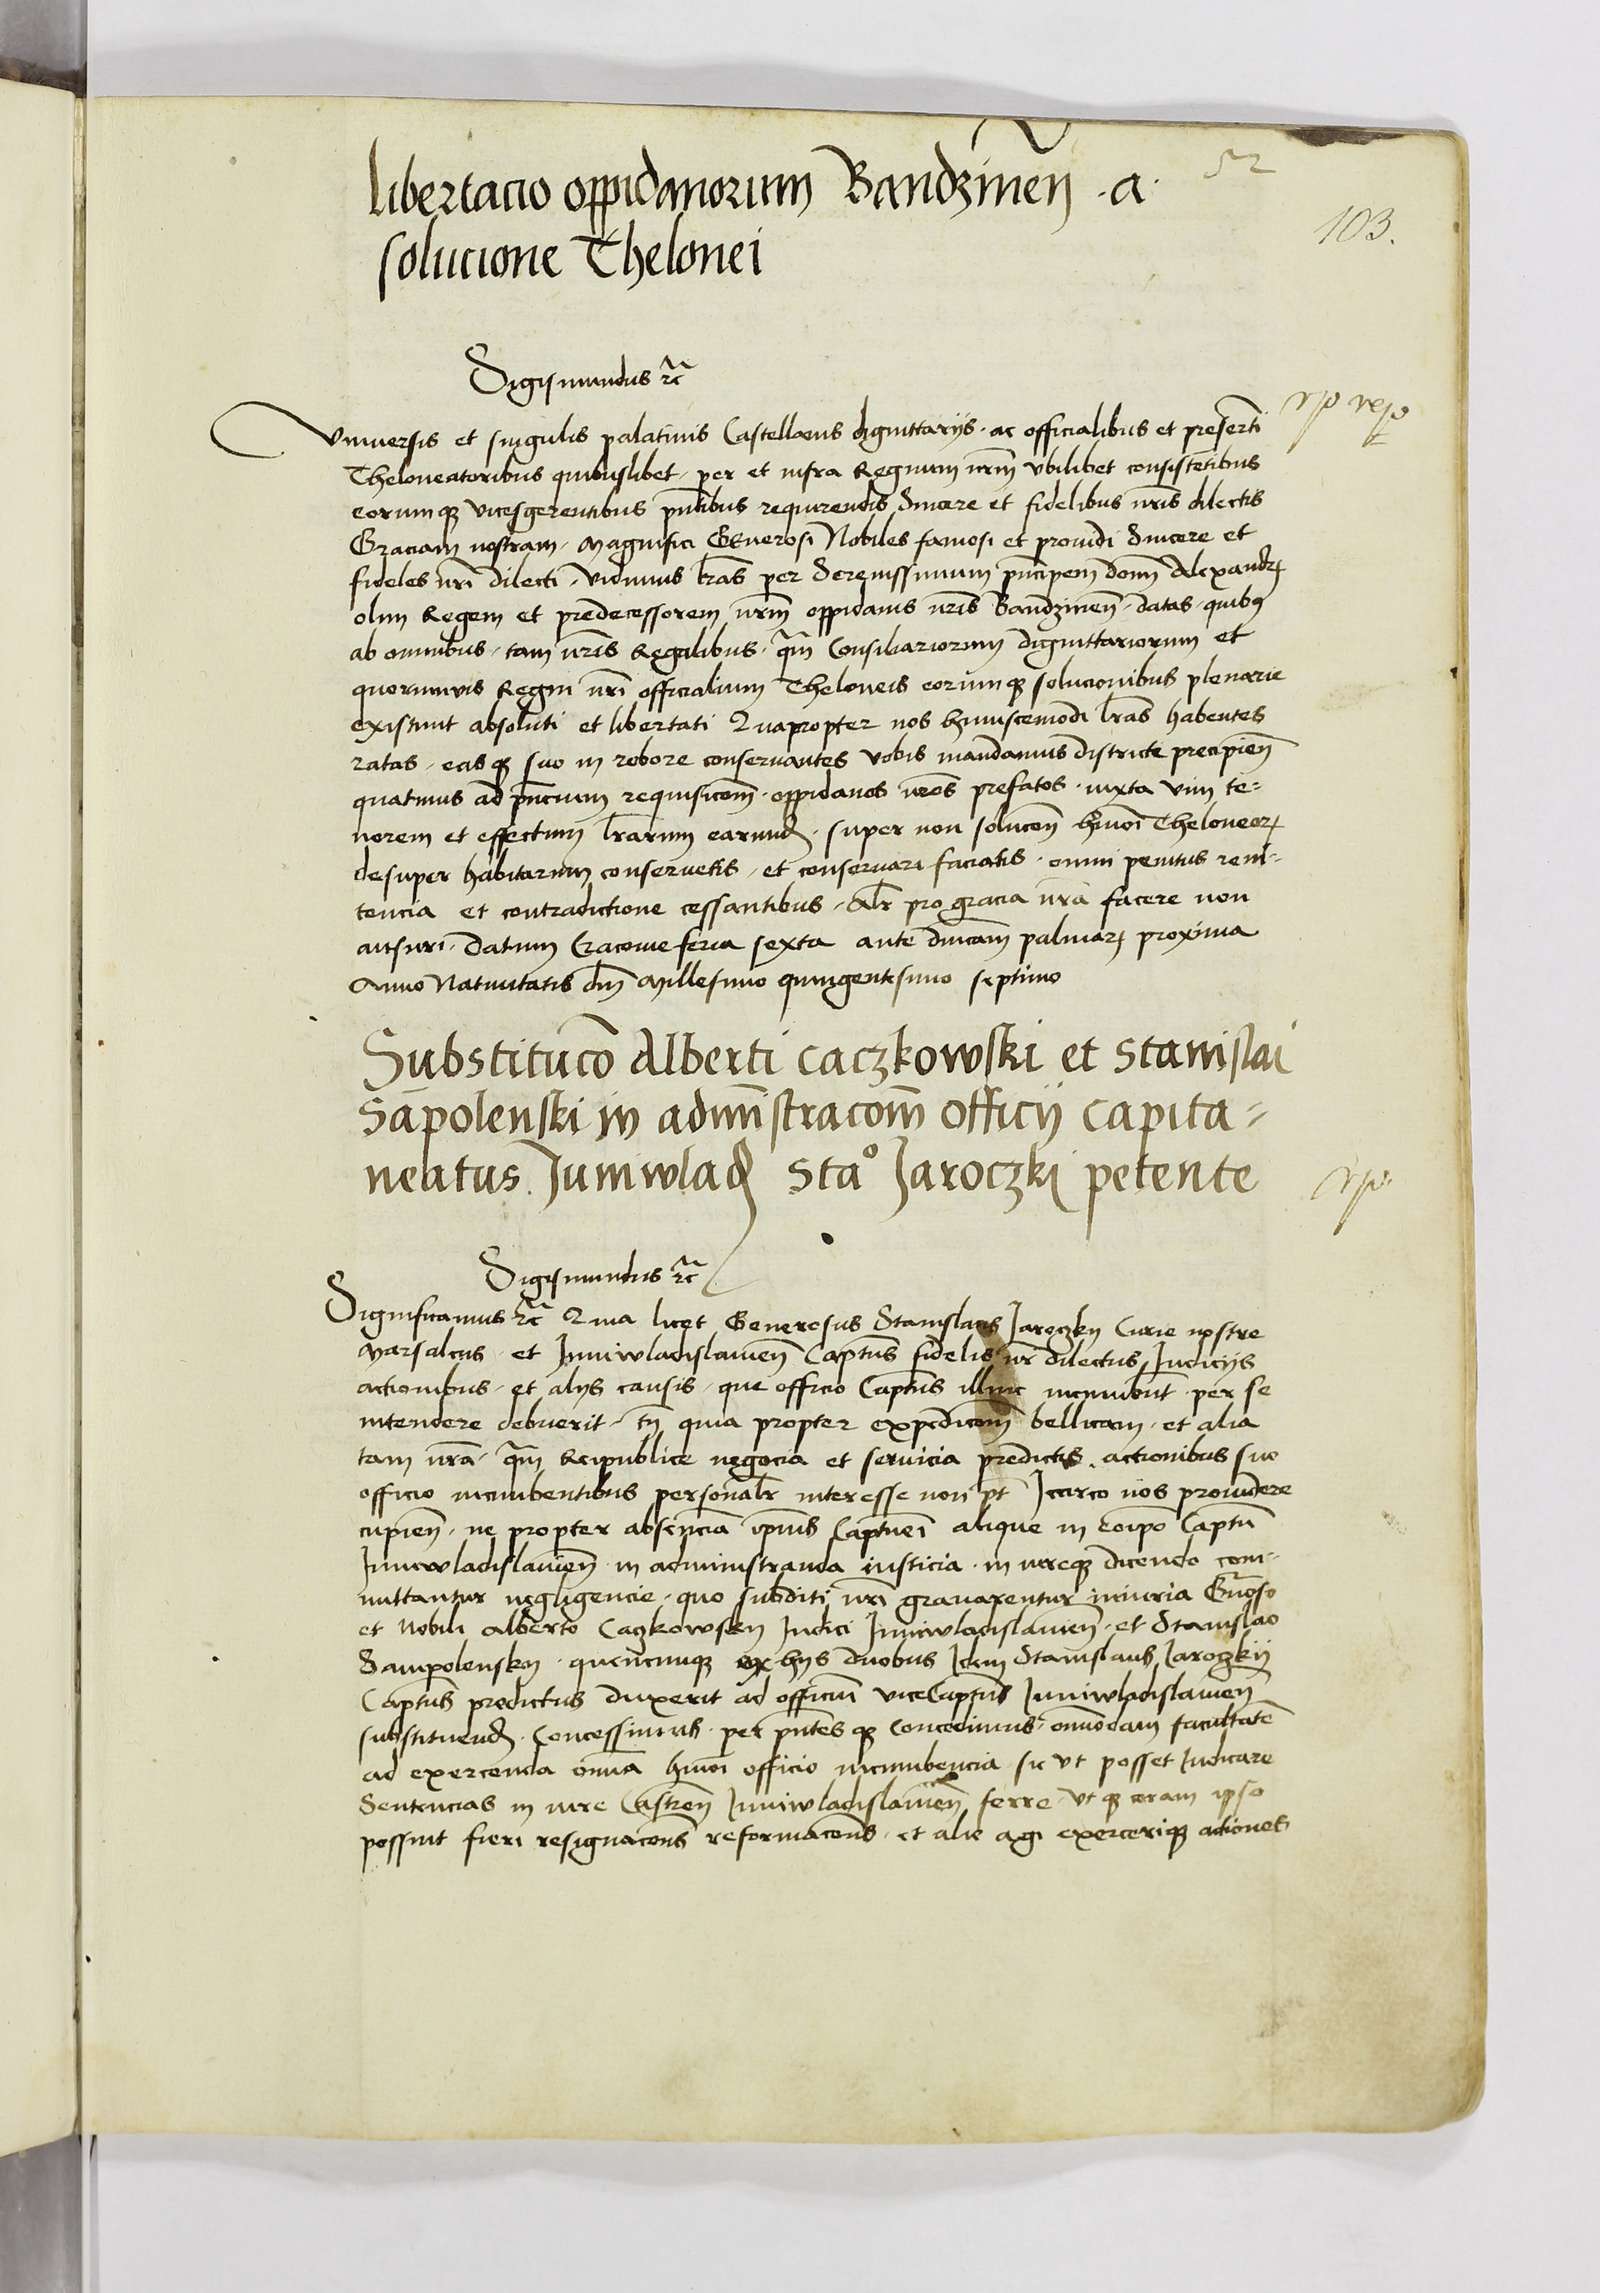 libertacio oppidanorum Bandzineñ · a ·
52
103.
solucione Thelonei
Sigismundus ꝛc̃
Vniuersis et singulis palatinis Castellanis dignittarijs · ac officialibus et preserti̅
Theloneatoribus quibuslibet · per et infra Regnum nr̅m vbilibet consiste̅tibus
eorumqꝫ vicesgerentibus pn̅tibus requirendis Sincere et fidelibus nr̅is dilectis
Graciam nostram · Magnifici Generosi Nobiles famosi et prouidi Sincere et
fideles nr̅i dilecti · vidimus lr̅as per Serenissimum pn̅cipem don̅m Alexandrꝫ
olim Regem et predecessorem nr̅m oppidanis nr̅is Bandzinen̅ · datas · quibꝰ
ab omnibus · tam nr̅is Regalibus · qm̅ Consiliariorum dignittariorum et
quorumuis Regni nr̅i officialium Theloneis eorumqꝫ solucionibus plenarie
existunt absoluti et libertati Quapropter nos hmiuscemodi lr̅as habentes
ratas · easqꝫ suo in robore conseruantes vobis mandamus districte precipien̅
quatinus ad pn̅cium requisicom̅ · oppidanos nr̅os prefatos · iuxta vim te=
norem et effectum lr̅arum earundꝫ · super non solucon̅ hmo̅i Theloneorꝫ
desuper habitarum conseruetis · et conseruari faciatis · omni penitus reni-
tencia et contradictione cessantibus · Alr̅ pro gracia nr̅a facere non
ausuri · Datum Cracouie feria sexta ante dn̅icam palmarꝫ proxima
Anno Natiuitatis dn̅i Millesimo quingentesimo septimo
Substituco̅ Alberti Caczkowski et Stanislai
Sa̅polenski in admi̅stracom̅ officij capita=
neatus Juniwladꝫ Staᵒ Jaroczki petente
Sigismundus ꝛc̃
Significamus ꝛc̃ Quia licet Generosus Stanislaus Jaroczky Curie nostre
Marsalcus · et Juniwladislauien̅ Capt̅us fidelis nr̅ dilectus Judicijs
actionibus · et alijs causis · que officio Capt̅us illinc incumbu̅t · per se
intendere debuerit · tn̅ quia propter expedicom̅ bellicam · et alia
tam nr̅a · qm̅ Reipublice negocia et seruicia predictis · actionibus suo
officio incumbentibus personalr̅ interesse non pt̅ Jccirco nos prouidere
cupien̅ · ne propter absencia̅ ipsius Captuei̅ alique in Capt̅u
Juniwladislauien̅ · in administranda iusticia · in iureqꝫ dicendo com-
mittantur negligencie · quo subditi nr̅i grauarentur iniuria Gn̅oso
et Nobili Alberto Caczkowsky Judici Juniwladislauien̅ · et Stanislao
Sampolensky · quencunqꝫ ex hijs duobus Jdem Stanislaus Jaroczkij
Capt̅us predictus duxerit ad officiu̅ viceCapt̅us Juniwladislauien̅
substituendꝫ · Concessimus · per pn̅tes qꝫ concedimus · omnodam facultate̅
ad exercenda om̅ia hmo̅i officio incumbencia · sic vt posset Judicare
Sentencias in iure Castren̅ Juniwladislauien̅ ferre · Vt qꝫ coram ipso
possint fieri resignacon̅s reformacon̅s · et alie agi exerceriqꝫ actiones